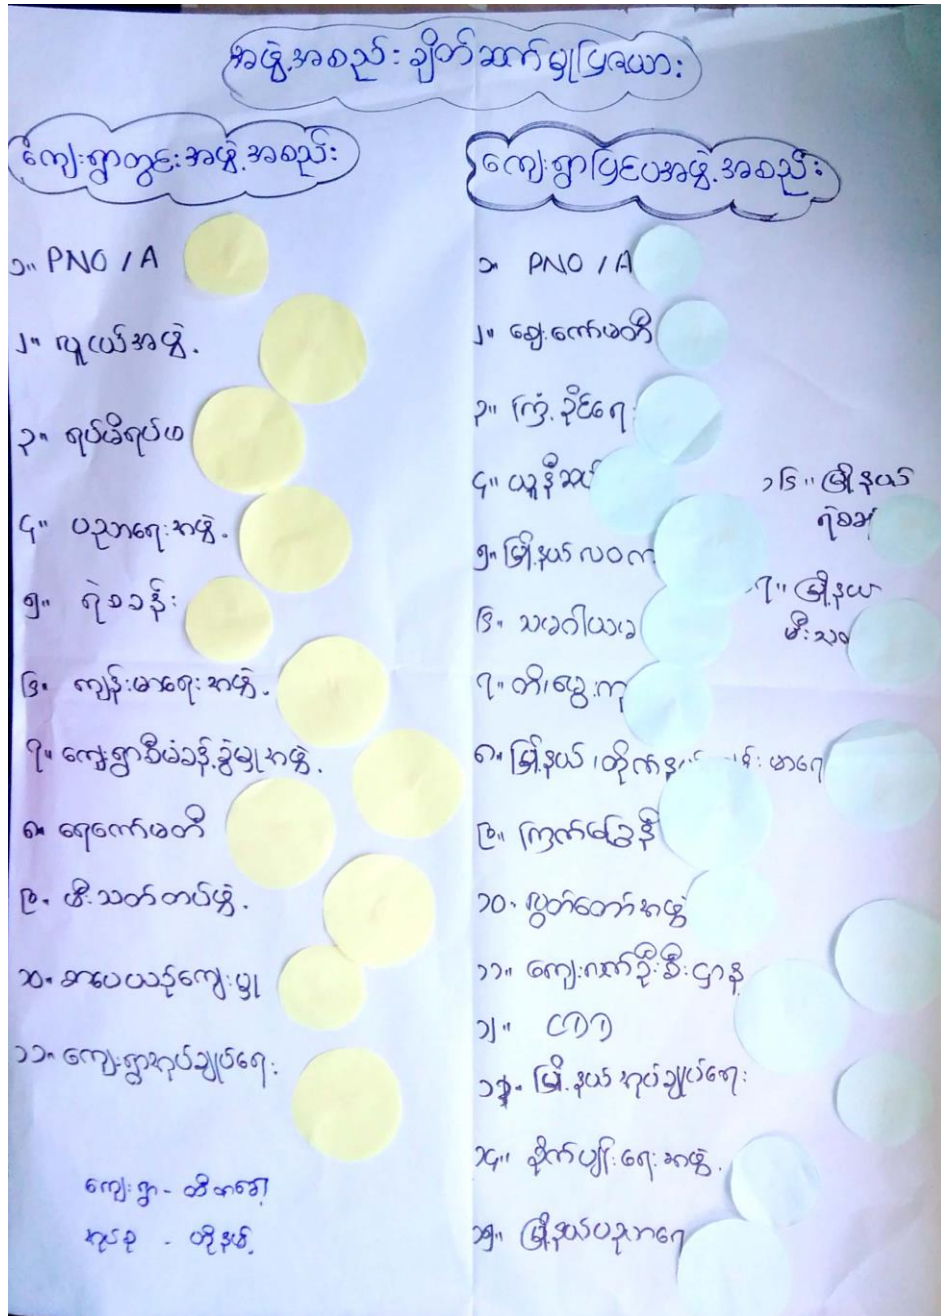 အဖွဲ့အစည်းချိတ်ဆက်မှုပြဇယား
ကျေးရွာတွင်းအဖွဲ့အစည်း
၁။ PNO / A
၂။ လူငယ်အဖွဲ့.
၃။ ရပ်မိရပ်ဖ
၄။ ပညာရေးအဖွဲ့.
၅။ ရဲစခန်း
၆။ ကျန်းမာရေးအဖွဲ့.
၇။ ကျေးရွာစီမံခန့်ခွဲမှုအဖွဲ့.
၈။ ရေကော်မတီ
၉။ မီးသတ်တပ်ဖွဲ့.
၁၀။ စာပေယဉ်ကျေးမှု
၁၁။ ကျေးရွာအုပ်ချုပ်ရေး
ကျေးရွာ -
အုပ်စု -
ကျေးရွာပြင်ပအဖွဲ့အစည်း
၁။ PNO / A
၂။ ချေးကော်မတီ
၃။ ကြံ့ခိုင်ရေး
၄။ ယူနီဆပ်
၅။ မြို့နယ် လဝက
၆။ သမဝါယမ
၇။ တိ၊မွေး၊ကု
၈။ မြို့နယ်၊တိုက်နယ် မာရေ
၉။ ကြက်ခြေနီ
၁၀။ လွှတ်တော်အဖွဲ့
၁၁။ ကျေးလက်ဦးစီးဌာန
၁၂။ CDD
၁၃။ မြို့နယ်အုပ်ချုပ်ရေး
၁၄။ စိုက်ပျိုးရေးအဖွဲ့.
၁၅။ မြို့နယ်ပညာရေ
၁၆။ မြို့နယ်
ရဲစခ
၁၇။ မြို့နယ်
မီးသ